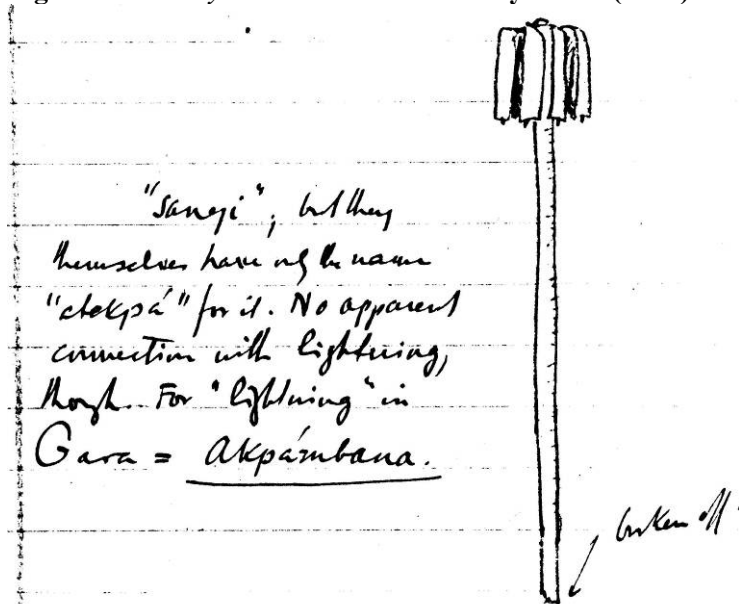 "sangi", but they
themselves have only the name
"atekpá" for it. No apparent
connection with lightning,
though. For "lightning" in
Gara = Akpámbana.
broken off